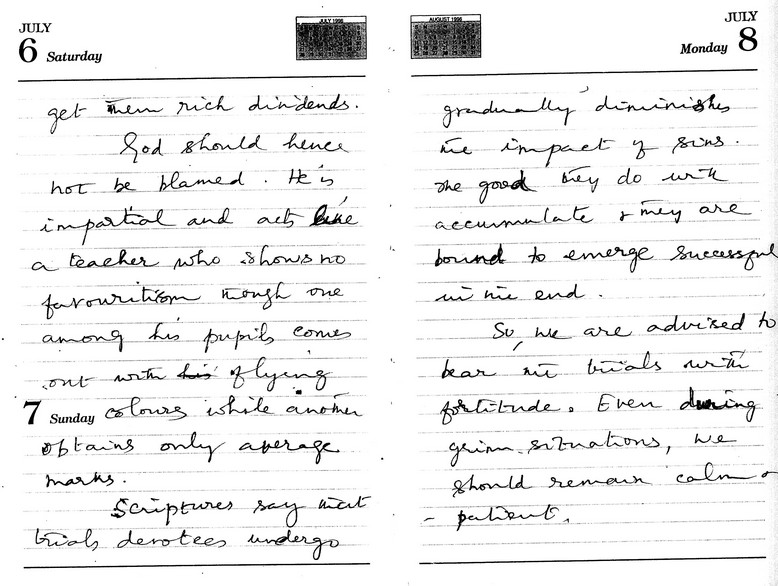 JULY
6 Saturday
JULY 1996
get them rich dividends.
God should hence
not be blamed. He is
impartial and acts like
a teacher who shows no
favouritism though one
among his pupils comes
out with flying
7 Sunday colours while another
obtains only average
marks.
Scriptures say that
trials devotees undergo
AUGUST 1996
JULY
Monday 8
gradually diminishes
the impact of sins.
The good they do will
accumulate & they are
bound to emerge successful
in the end.
So, we are advised to
bear the trials with
fortitude. Even during
grim situations, we
should remain calm &
patient.